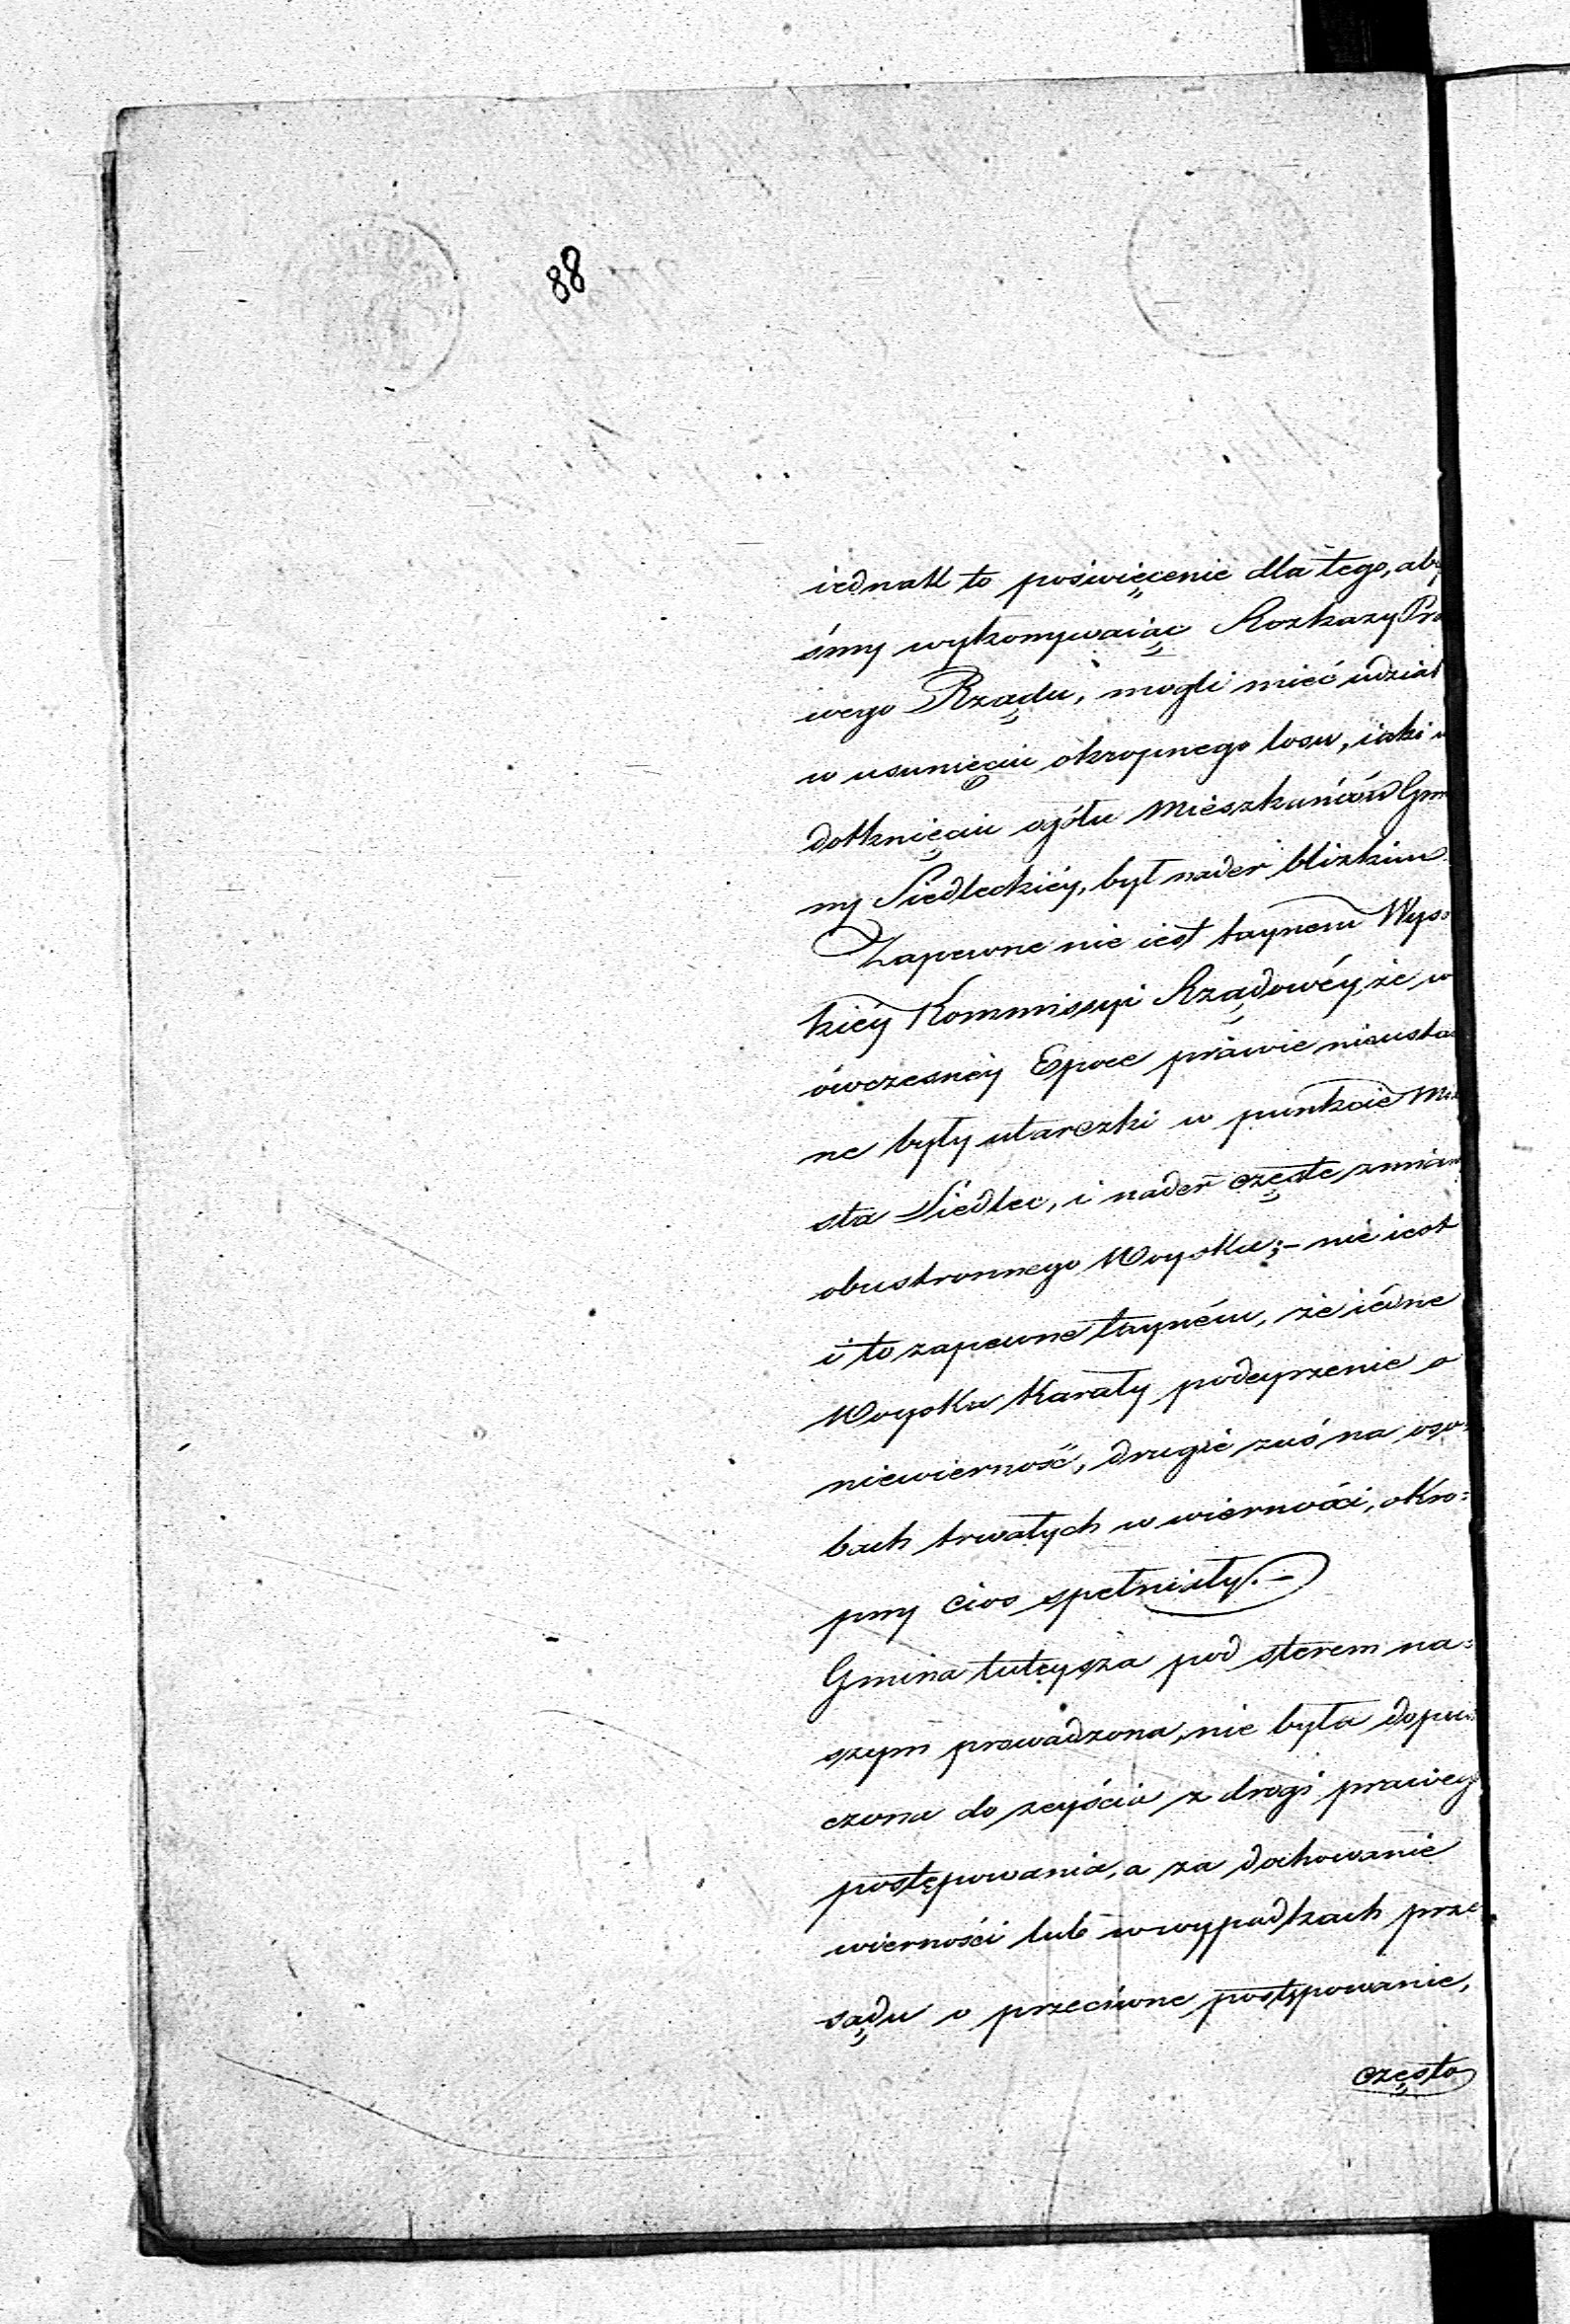 88
iednak to poświęcenie dla tego, aby
śmy wykonywaiąc Rozkazy Pra
wego Rządu, mogli mieć udział
w usunięciu okropnego losu, iaki w
dotknięciu ogółu Mieszkańców Gmi
ny Siedleckiéy, był nader blizkim
Zapewne nie iest taynem Wyso=
kiéy Kommissyi Rządowéy, że w
ówczesnéy Epoce prawie nieusta
ne były utarczki w punkcie Mia
sta Siedlec, i nader częste zmian
obustronnego Woyska; – nie iest
i to zapewne tayném, że iedne
Woyska Karały podeyrzenie o
niewierność, drugie zaś na oso=
bach trwałych w wierności, okro=
pny cios spełniały. –
Gmina tuteysza pod sterem na=
szym prowadzona, nie była dopu=
czona do zeyścia z drogi prawéy
postępowania, a za dochowanie
wierności lub w wypadkach prze
sądu o przeciwne postępowanie,
często